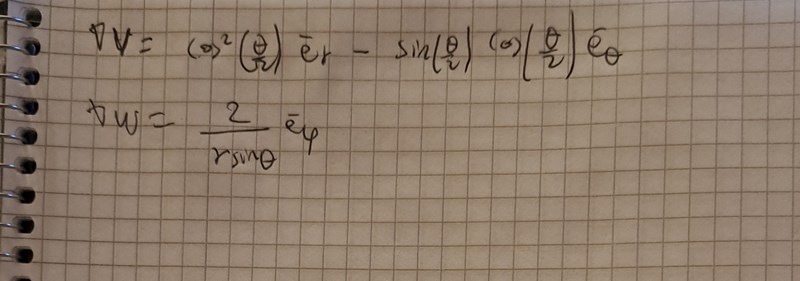 ∇V = cos²(θ/2) ēr − sin(θ/2) cos(θ/2) ēθ
∇W = 2/(r sinθ) ēφ